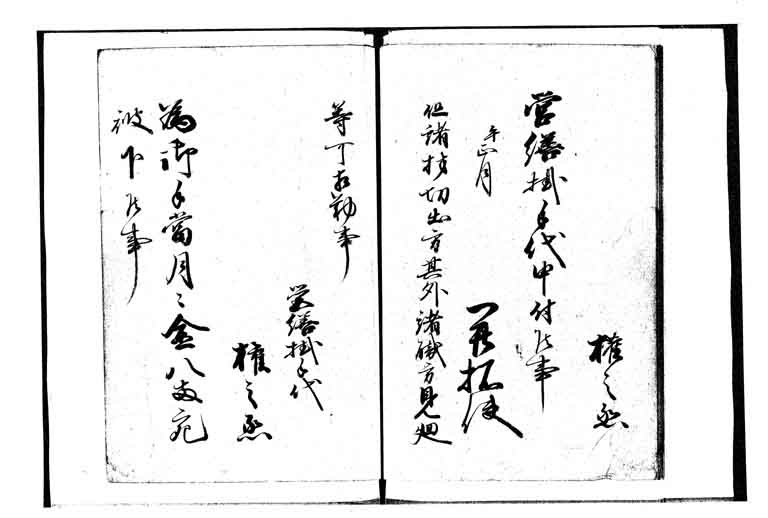 権之丞
営繕掛手代申付候事
午正月
開拓使
但諸材切出方其外諸職方見廻
等可相勤事
営繕掛手代
権之丞
為御手當月々金八両宛
被下候事